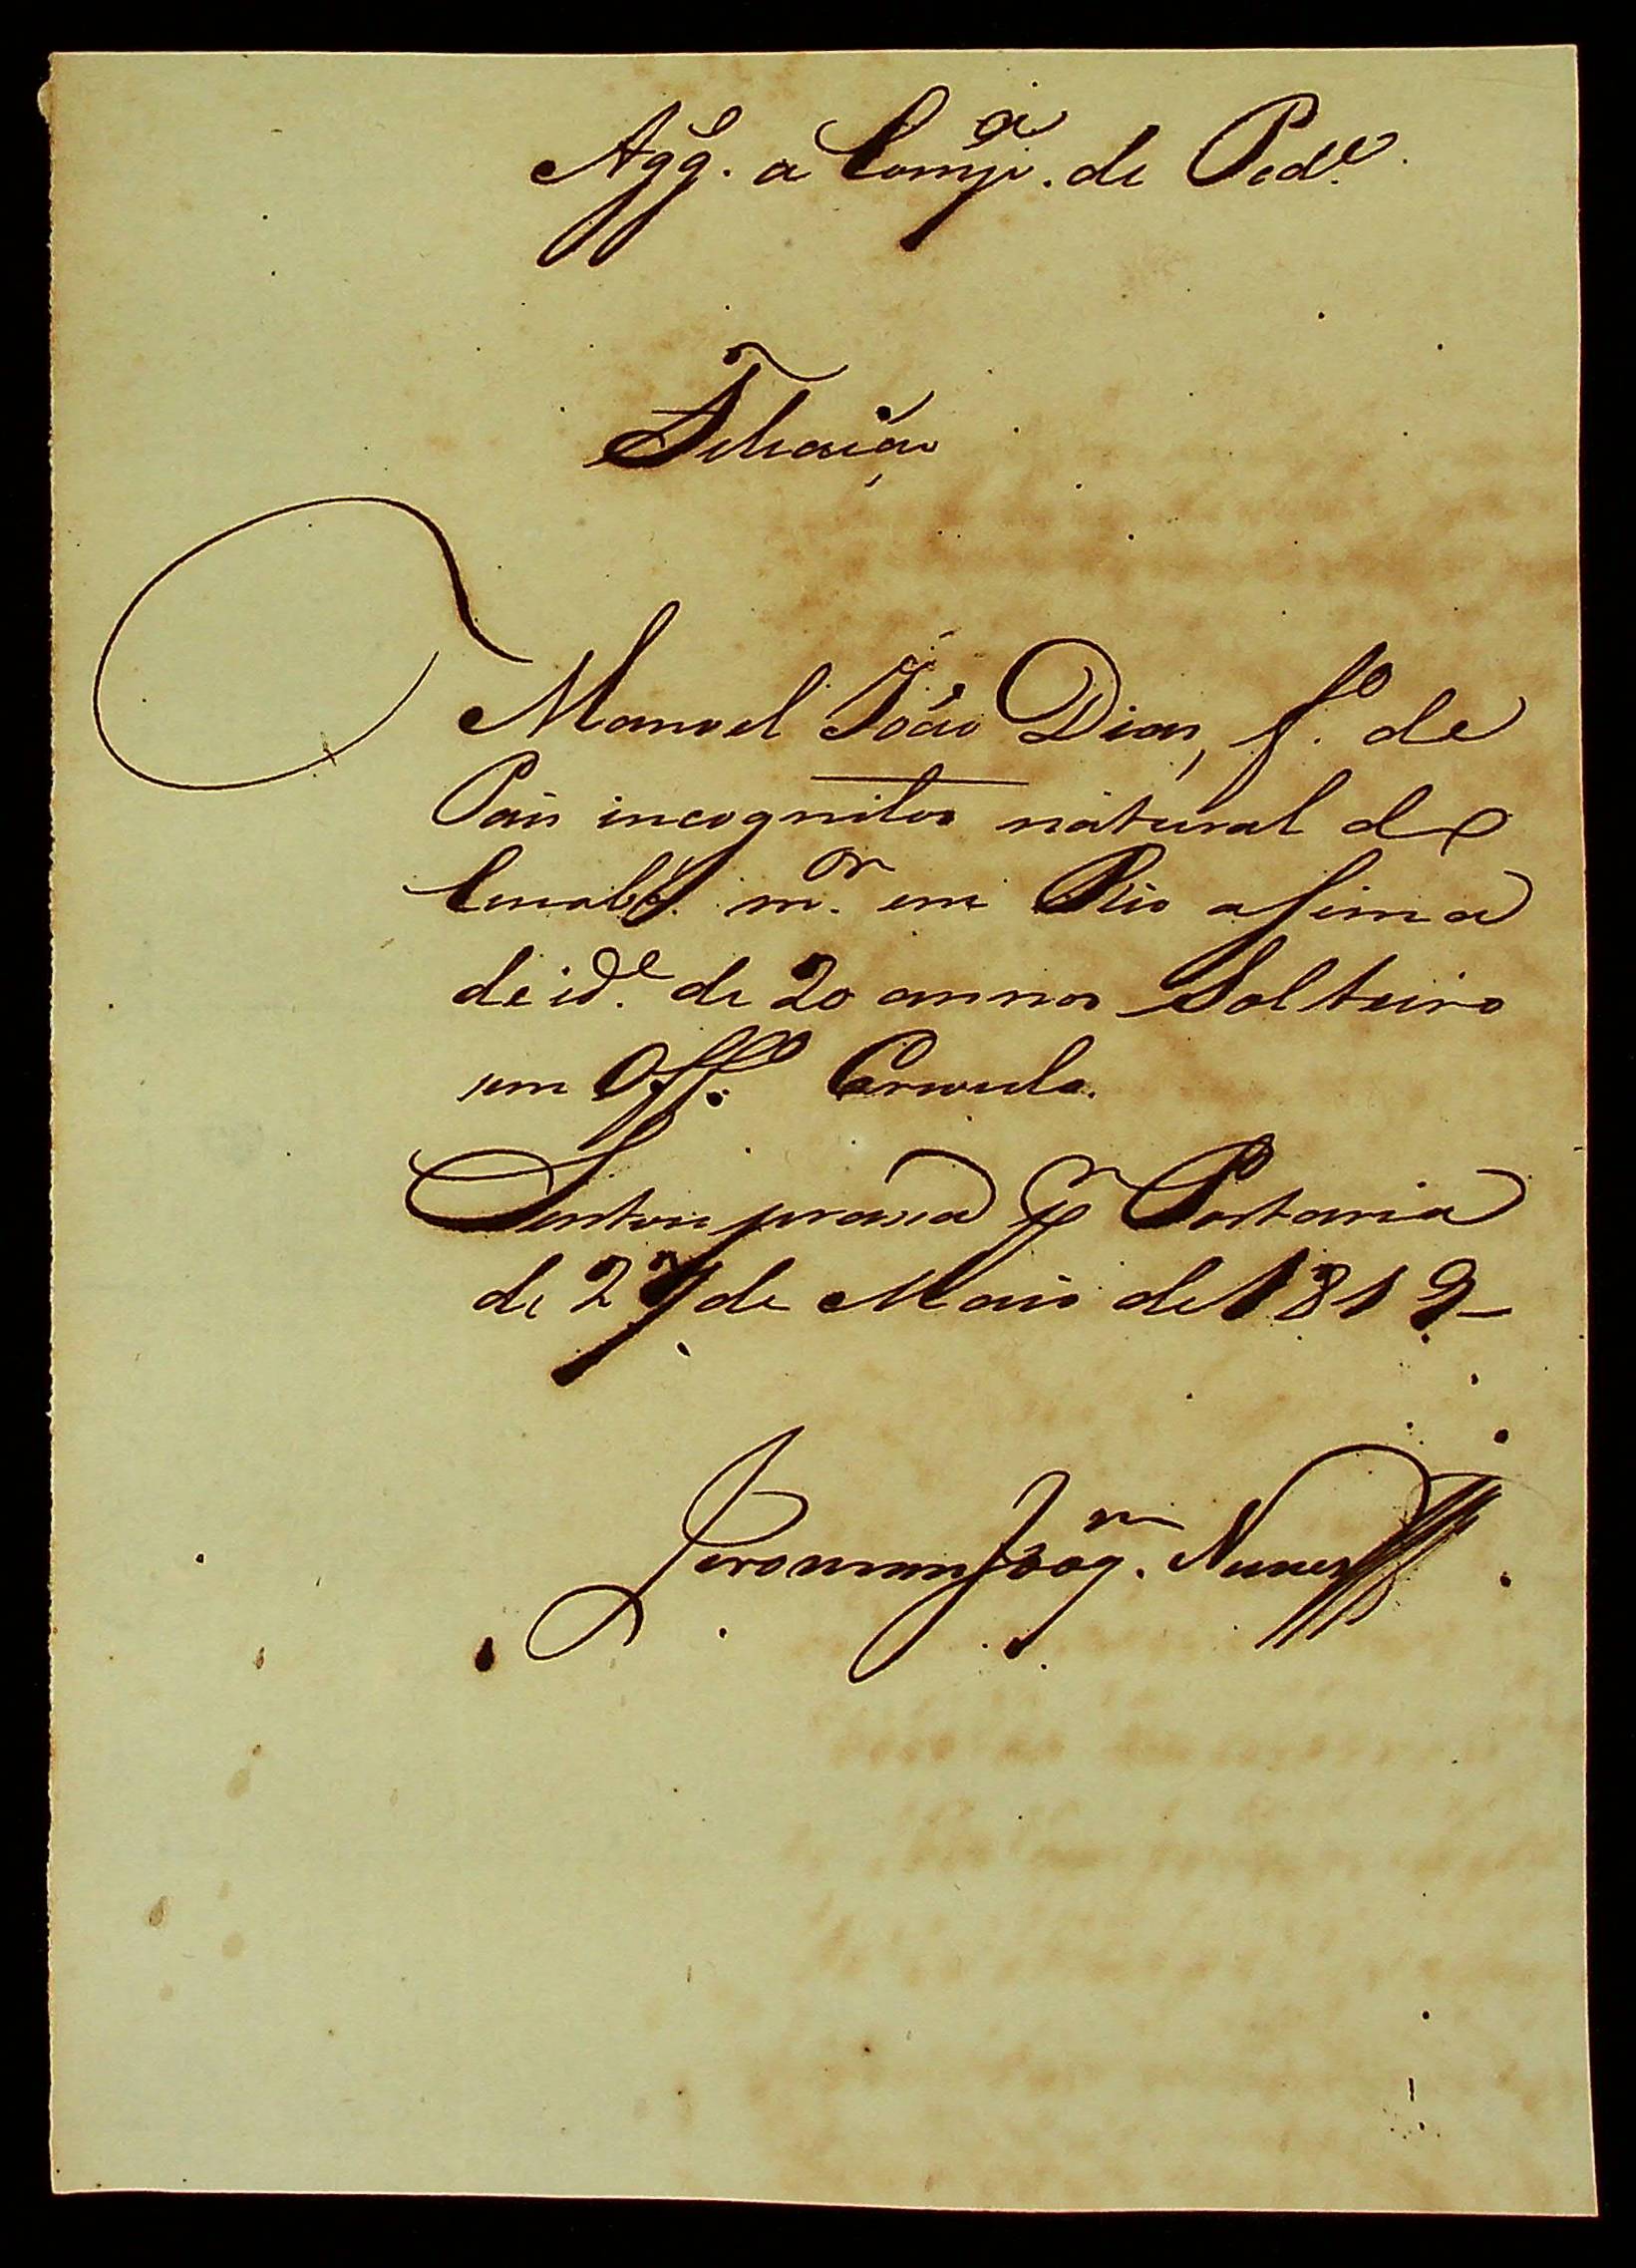 Agg.º a Comp.ª de Ped.es
Filiação
Manoel João Dias, f.º de
Pais incognitos natural de
m.or em Rio asima
de id.e de 20 annos Solteiro
sem Off.º Crioulo.
Sentou prassa p.r Portaria
de 27 de Maio de 1819
Jeronimo Joaq.m Nunes